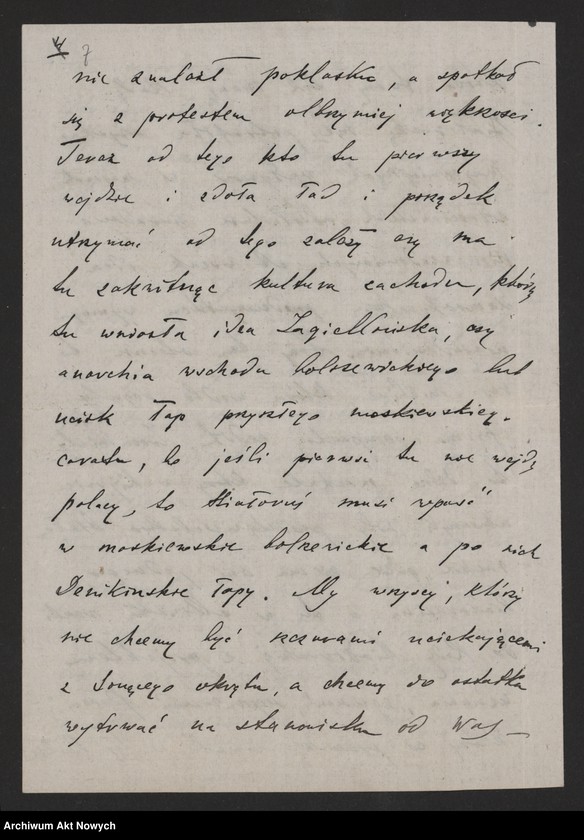 4 7
nie znalazł poklasku, a spotkał
się z protestem olbrzymiej większości.
Teraz od tego kto tu pierwszy
wejdzie i zdoła ład i porządek
utrzymać od tego zależy czy ma
tu zakwitnąć kultura zachodu, którą
tu wniosła idea Jagiellońska, czy
anarchia wschodu bolszewickiego lub
ucisk łap przyszłego moskiewskieg.
caratu, bo jeśli pierwsi tu nie wejdą
polacy, to Białoruś musi wpaść
w moskiewskie bolszewickie a po nich
Denikinskie łapy. My wszyscy, którzy
nie chcemy być szczurami uciekającemi
z tonącego okrętu, a chcemy do ostatka
wytrwać na stanowisku od Was —
Archiwum Akt Nowych